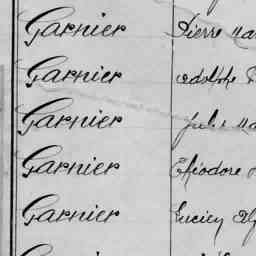 Garnier Pierre
Garnier Adolphe
Garnier Jules
Garnier Théodore
Garnier Lucien